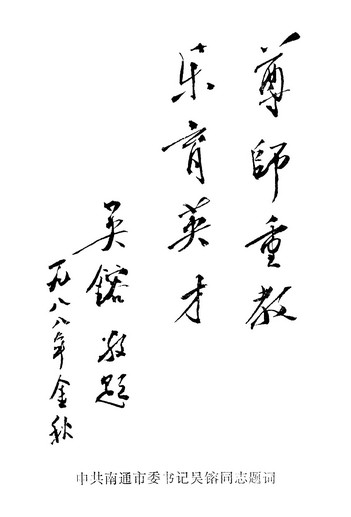 尊師重教
乐育英才
吴镕敬题
一九八八年金秋
中共南通市委书记吴镕同志题词